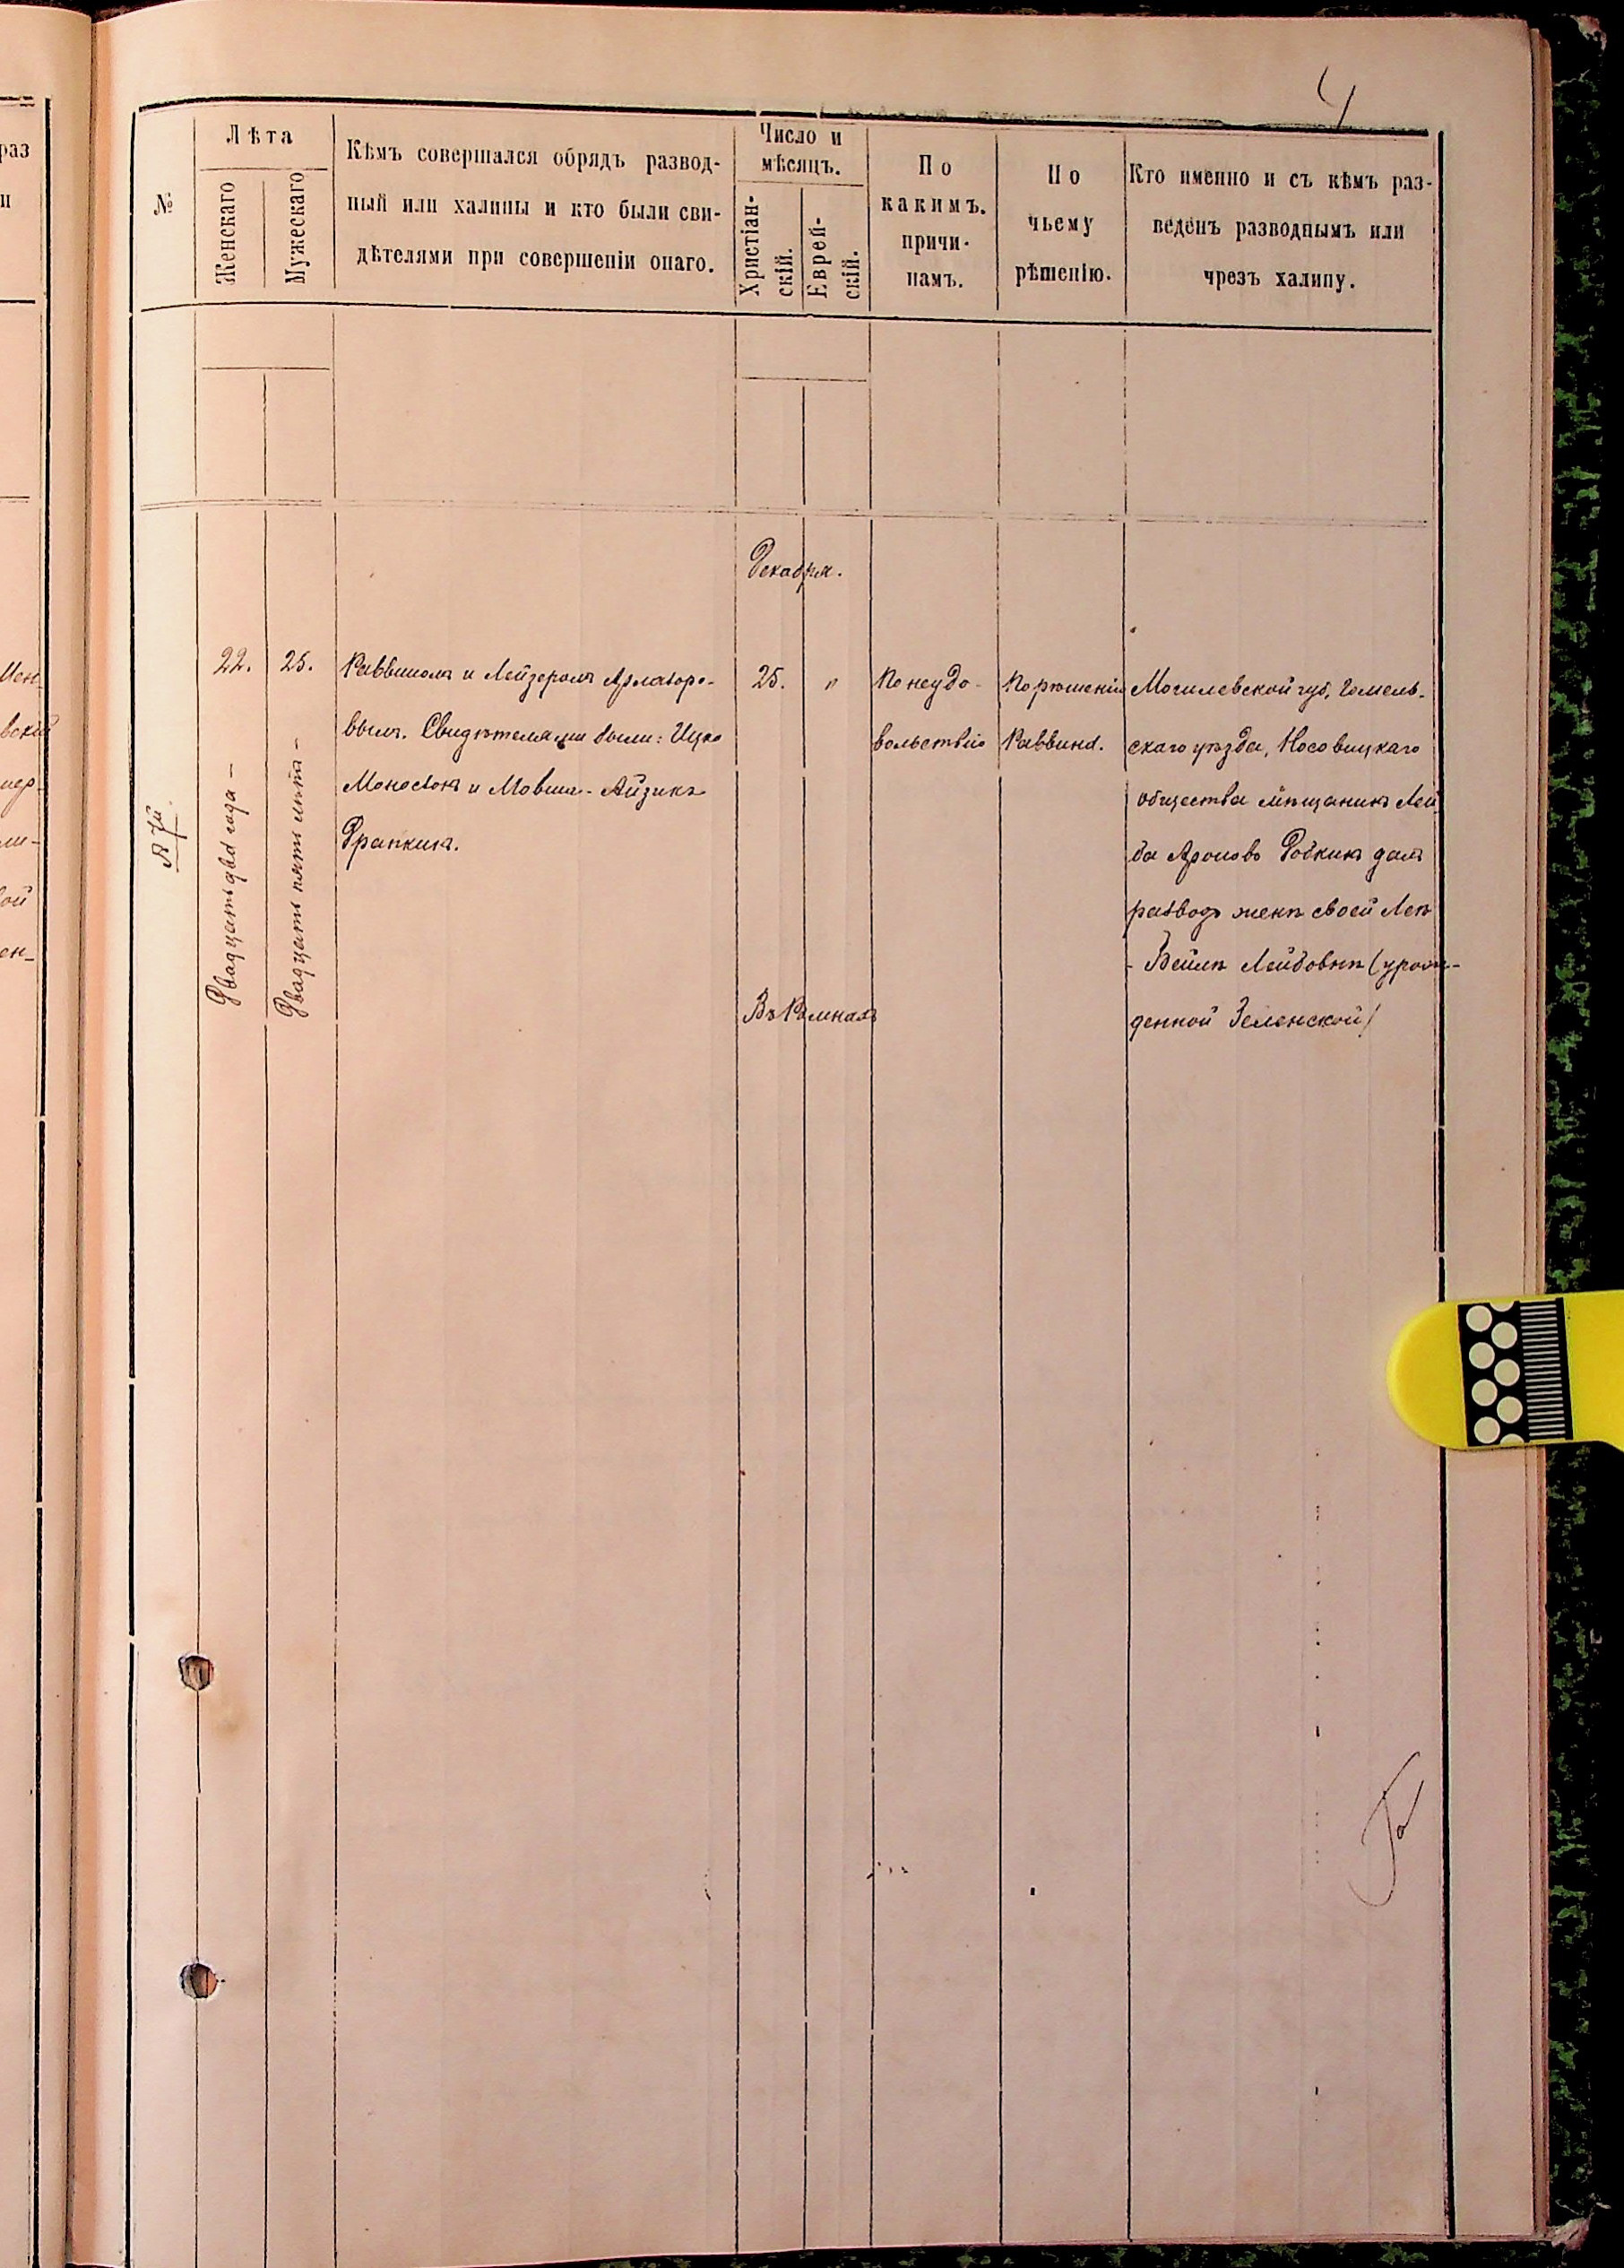 4
№
Лѣта
Женскаго
Мужескаго
Кѣмъ совершался обрядъ развод-
ный или халицы и кто были сви-
дѣтелями при совершеніи онаго.
Число и
мѣсяцъ.
Христіан-
скій.
Еврей-
скій.
По
какимъ.
причи-
намъ.
По
чьему
рѣшенію.
Кто именно и съ кѣмъ раз-
веденъ разводнымъ или
чрезъ халицу.
22.
Двадцать два года -
25.
Двадцать пять лѣтъ -
Раввиномъ и Лейзеромъ Арлазоро-
вымъ. Свидѣтелями были: Ицко
и Мовша-Айзикъ
Декабря.
25.
"
Въ Ромнахъ
По неудо-
вольствію
По рѣшенію
Раввина.
Могилевской губ. Гомель-
скаго уѣзда, Носовицкаго
общества мѣщанинъ Лей
ба Ароновъ далъ
разводъ женѣ своей Леѣ
-Бейлѣ Лейбовнѣ (урож-
денной Зеленской)